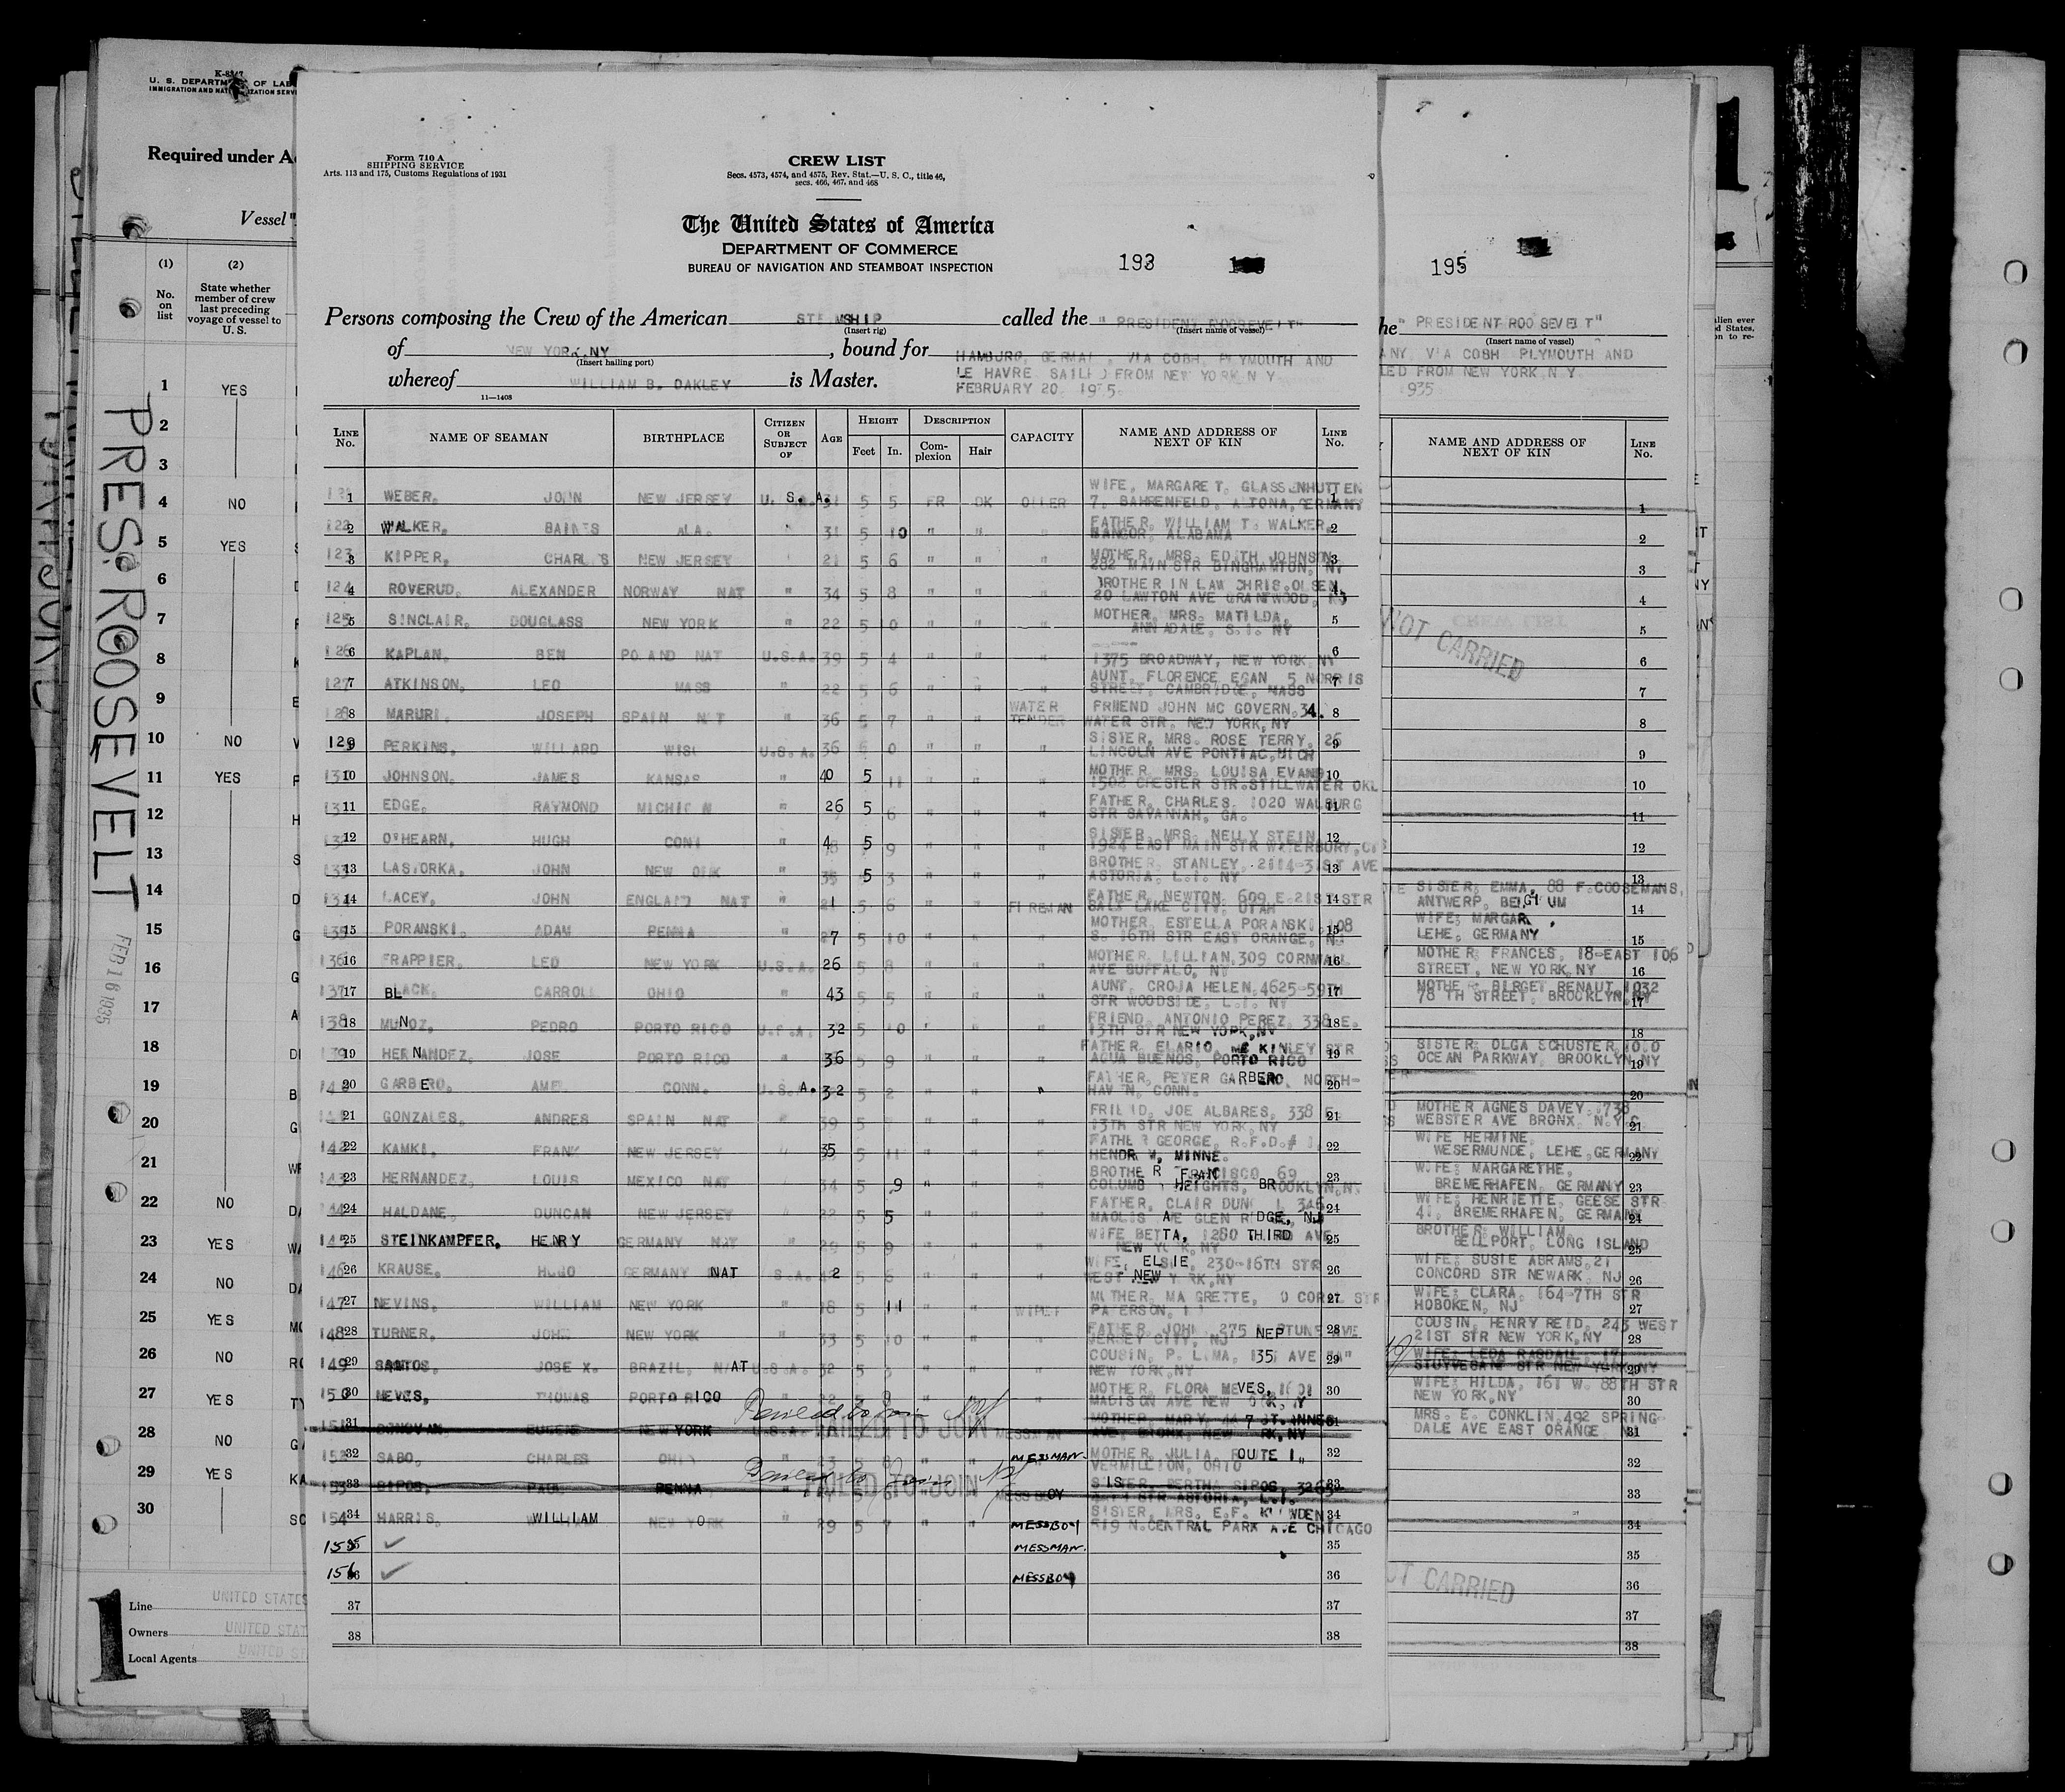 K-8
U. S. DEPARTM OF LAB
IMMIGRATION AND NAT IZATION SERV
Required under A
Vessel "
(1) (2)
No. on list
State whether member of crew last preceding voyage of vessel to U. S.
1 YES
2
3
4 NO
5 YES
6
7
8
9
10 NO
11 YES
12
13
14
15
16
17
18
19
20
21
22 NO
23 YES
24 NO
25 YES
26 NO
27 YES
28 NO
29 YES
30
PRES. ROOSEVELT
FEB 16 1935
1
Line UNITED STATES
Owners UNITED STAT
Local Agents UNITED ST
Form 710 A
SHIPPING SERVICE
Arts. 113 and 175, Customs Regulations of 1931
CREW LIST
Secs. 4573, 4574, and 4575, Rev. Stat.—U. S. C., title 46,
secs. 466, 467, and 468
The United States of America
DEPARTMENT OF COMMERCE
BUREAU OF NAVIGATION AND STEAMBOAT INSPECTION
193
Persons composing the Crew of the American STEAMSHIP called the "PRESIDENT ROOSEVELT"
(Insert rig) (Insert name of vessel)
of NEW YORK,NY, bound for HAMBURG, GERMA , VIA COBH, PLYMOUTH AND
(Insert hailing port)
LE HAVRE SAILED FROM NEW YORK,N Y
whereof WILLIAM B. OAKLEY is Master. FEBRUARY 20, 1935.
11—1408
LINE No. NAME OF SEAMAN BIRTHPLACE CITIZEN OR SUBJECT OF AGE HEIGHT Feet In. DESCRIPTION Complexion Hair CAPACITY NAME AND ADDRESS OF NEXT OF KIN LINE No.
1 WEBER, JOHN NEW JERSEY U. S. A. 31 5 5 FR DK OILER WIFE, MARGARET, GLASSENHUTTEN 1
7, BAHRENFELD, ALTONA, GERMANY
122 2 WALKER, BAINES ALA. " 31 5 10 " " " FATHER, WILLIAM T. WALKER, 2
BANGOR, ALABAMA
123 3 KIPPER, CHARLES NEW JERSEY " 21 5 6 " " " MOTHER, MRS. EDITH JOHNSON, 3
282 MAIN STR BINGHAMTON, NY
124 4 ROVERUD, ALEXANDER NORWAY NAT " 34 5 8 " " " BROTHER IN LAW CHRIS.OLSEN, 4
20 LAWTON AVE GRANTWOOD, NJ
125 5 SINCLAIR, DOUGLASS NEW YORK " 22 5 0 " " " MOTHER, MRS. MATILDA, 5
ANNADALE, S.I. NY
126 6 KAPLAN, BEN POLAND NAT U.S.A. 39 5 4 " " " 6
1375 BROADWAY, NEW YORK,NY
127 7 ATKINSON, LEO MASS " 22 5 6 " " " AUNT, FLORENCE EGAN 5 NORRIS 7
STREET, CAMBRIDGE, MASS
128 8 MARURI, JOSEPH SPAIN NAT " 36 5 7 " " WATER TENDER FRIEND JOHN MC GOVERN,34. 8
WATER STR, NEW YORK,NY
129 9 PERKINS, WILLARD WISC U.S.A. 36 6 0 " " " SISTER, MRS. ROSE TERRY, 26 9
LINCOLN AVE PONTIAC,MICH
10 JOHNSON, JAMES KANSAS " 40 5 11 " " " MOTHER, MRS. LOUISA EVANS 10
1502 CHESTER STR.STILLWATER OKL
11 EDGE, RAYMOND MICHIGAN " 26 5 6 " " " FATHER, CHARLES, 1020 WALBURG 11
STR SAVANNAH, GA.
12 O'HEARN, HUGH CONN " 5 9 " " " SISTER, MRS. NELLY STEIN, 12
1924 EAST MAIN STR WATERBURY,
13 LASTORKA, JOHN NEW YORK " 35 5 3 " " " BROTHER, STANLEY, 2114-31ST AVE 13
ASTORIA, L.I. NY
14 LACEY, JOHN ENGLAND NAT " 21 5 6 " " FIREMAN FATHER, NEWTON, 609 E.21ST STR 14
SALT LAKE CITY, UTAH
135 15 PORANSKI, ADAM PENNA " 27 5 10 " " " MOTHER, ESTELLA PORANSKI, 108 15
S. 16TH STR EAST ORANGE, NJ
136 16 FRAPPIER, LEO NEW YORK U.S.A. 26 5 8 " " " MOTHER, LILLIAN,309 CORNWALL 16
AVE BUFFALO, NY
137 17 BLACK, CARROLL OHIO " 43 5 5 " " " AUNT, CROJA HELEN,4625-59TH 17
STR WOODSIDE, L.I. NY
138 18 MUNOZ, PEDRO PORTO RICO U.S.A. 32 5 10 " " " FRIEND, ANTONIO PEREZ, 338 E. 18
13TH STR NEW YORK,NY
139 19 HERNANDEZ, JOSE PORTO RICO " 36 5 9 " " " FATHER, ELARIO, MC KINLEY STR 19
AGUA BUENOS, PORTO RICO
20 GARBERO, AMEL CONN. U.S.A. 32 5 2 " " " FATHER, PETER GARBERO, NORTH- 20
HAVEN, CONN.
21 GONZALES, ANDRES SPAIN NAT " 39 5 " " " FRIEND, JOE ALBARES, 338 E 21
13TH STR NEW YORK,NY
142 22 KAMKI, FRANK NEW JERSEY " 35 5 11 " " " FATHER GEORGE, R.F.D.# 1, 22
HENDR M, MINNE.
143 23 HERNANDEZ, LOUIS MEXICO NAT " 34 5 9 " " " BROTHER FRANCISCO, 69 23
COLUMB HEIGHTS, BROOKLYN,N.
24 HALDANE, DUNCAN NEW JERSEY " 22 5 5 " " " FATHER, CLAIR DUNC , 346 24
MAOLIS AVE GLEN RIDGE, NJ
145 25 STEINKAMPFER, HENRY GERMANY NAT " 29 5 9 " " " WIFE BETTA, 1280 THIRD AVE 25
NEW YORK,NY
146 26 KRAUSE, HUGO GERMANY NAT U.S.A. 2 5 6 " " " WIFE, ELSIE, 230-16TH STR 26
WEST NEW YORK,NY
147 27 NEVINS, WILLIAM NEW YORK " 18 5 11 " " WIPER MOTHER, MARGRETTE, STR 27
PATERSON,
148 28 TURNER, JOHN NEW YORK " 33 5 10 " " " FATHER, JOHN, 275 NEPTUNE AVE 28
JERSEY CITY, NJ
149 29 SANTOS, JOSE X. BRAZIL, NAT U.S.A. 32 5 " " " COUSIN, P. LIMA, 135 AVE "A" 29
NEW YORK,NY
150 30 NEVES, THOMAS PORTO RICO " 22 5 9 " " " MOTHER, FLORA MEVES, 1601 30
MADISON AVE NEW YORK, NY
Failed to Join
151 31 DONOVAN, EUGENE NEW YORK U.S.A. FAILED TO JOIN MESSMAN MOTHER, MARY, 447 ST. ANNES 31
AVE, BRONX, NEW YORK, NY
152 32 SABO, CHARLES OHIO " 23 5 " " MESSMAN. MOTHER, JULIA, ROUTE 1, 32
VERMILLION, OHIO
Failed to Join
153 33 SIPOS, PAUL PENNA FAILED TO JOIN MESSBOY SISTER, BERTHA SIPOS, 3263 33
STR ASTORIA, L.I.
154 34 HARRIS, WILLIAM NEW YORK " 29 5 7 " " MESSBOY SISTER, MRS. E.F. 34
519 N.CENTRAL PARK AVE CHICAGO
155 35 ✓ MESSMAN. 35
156 36 ✓ MESSBOY 36
37 37
38 38
195
he "PRESIDENT ROOSEVELT"
(Insert name of vessel)
ANY, VIA COBH PLYMOUTH AND
LED FROM NEW YORK,N.Y.
1935
NAME AND ADDRESS OF NEXT OF KIN LINE No.
1
2
3
4
5
NOT CARRIED
6
7
8
9
10
11
12
13
SISTER, EMMA, 88 F.COOSEMANS,
ANTWERP, BELGIUM 14
WIFE; MARGAR
LEHE, GERMANY 15
MOTHER; FRANCES, 18-EAST 106
STREET, NEW YORK,NY 16
MOTHER, BIRGET RENAUT,1032
78 TH STREET, BROOKLYN,NY 17
18
SISTER; OLGA SCHUSTER,
OCEAN PARKWAY, BROOKLYN,NY 19
20
MOTHER AGNES DAVEY, 738
WEBSTER AVE BRONX, N.Y. 21
WIFE HERMINE,
WESERMUNDE, LEHE,GERMANY 22
WIFE; MARGARETHE,
BREMERHAFEN, GERMANY 23
WIFE; HENRIETTE, GEESE STR
41, BREMERHAFEN, GERMANY 24
BROTHER; WILLIAM,
BELLPORT, LONG ISLAND 25
WIFE; SUSIE ABRAMS,21
CONCORD STR NEWARK, NJ 26
WIFE; CLARA, 164-7TH STR
HOBOKEN, NJ 27
COUSIN, HENRY REID, 243 WEST
21ST STR NEW YORK,NY 28
WIFE; LEDA RAGDALL, 17
STUYVESANT STR NEW YORK,NY 29
WIFE; HILDA, 161 W. 88TH STR
NEW YORK,NY 30
MRS. E. CONKLIN,492 SPRING-
DALE AVE EAST ORANGE, NJ 31
32
33
34
35
NOT CARRIED 36
37
38
alien ever
d States,
on to re-